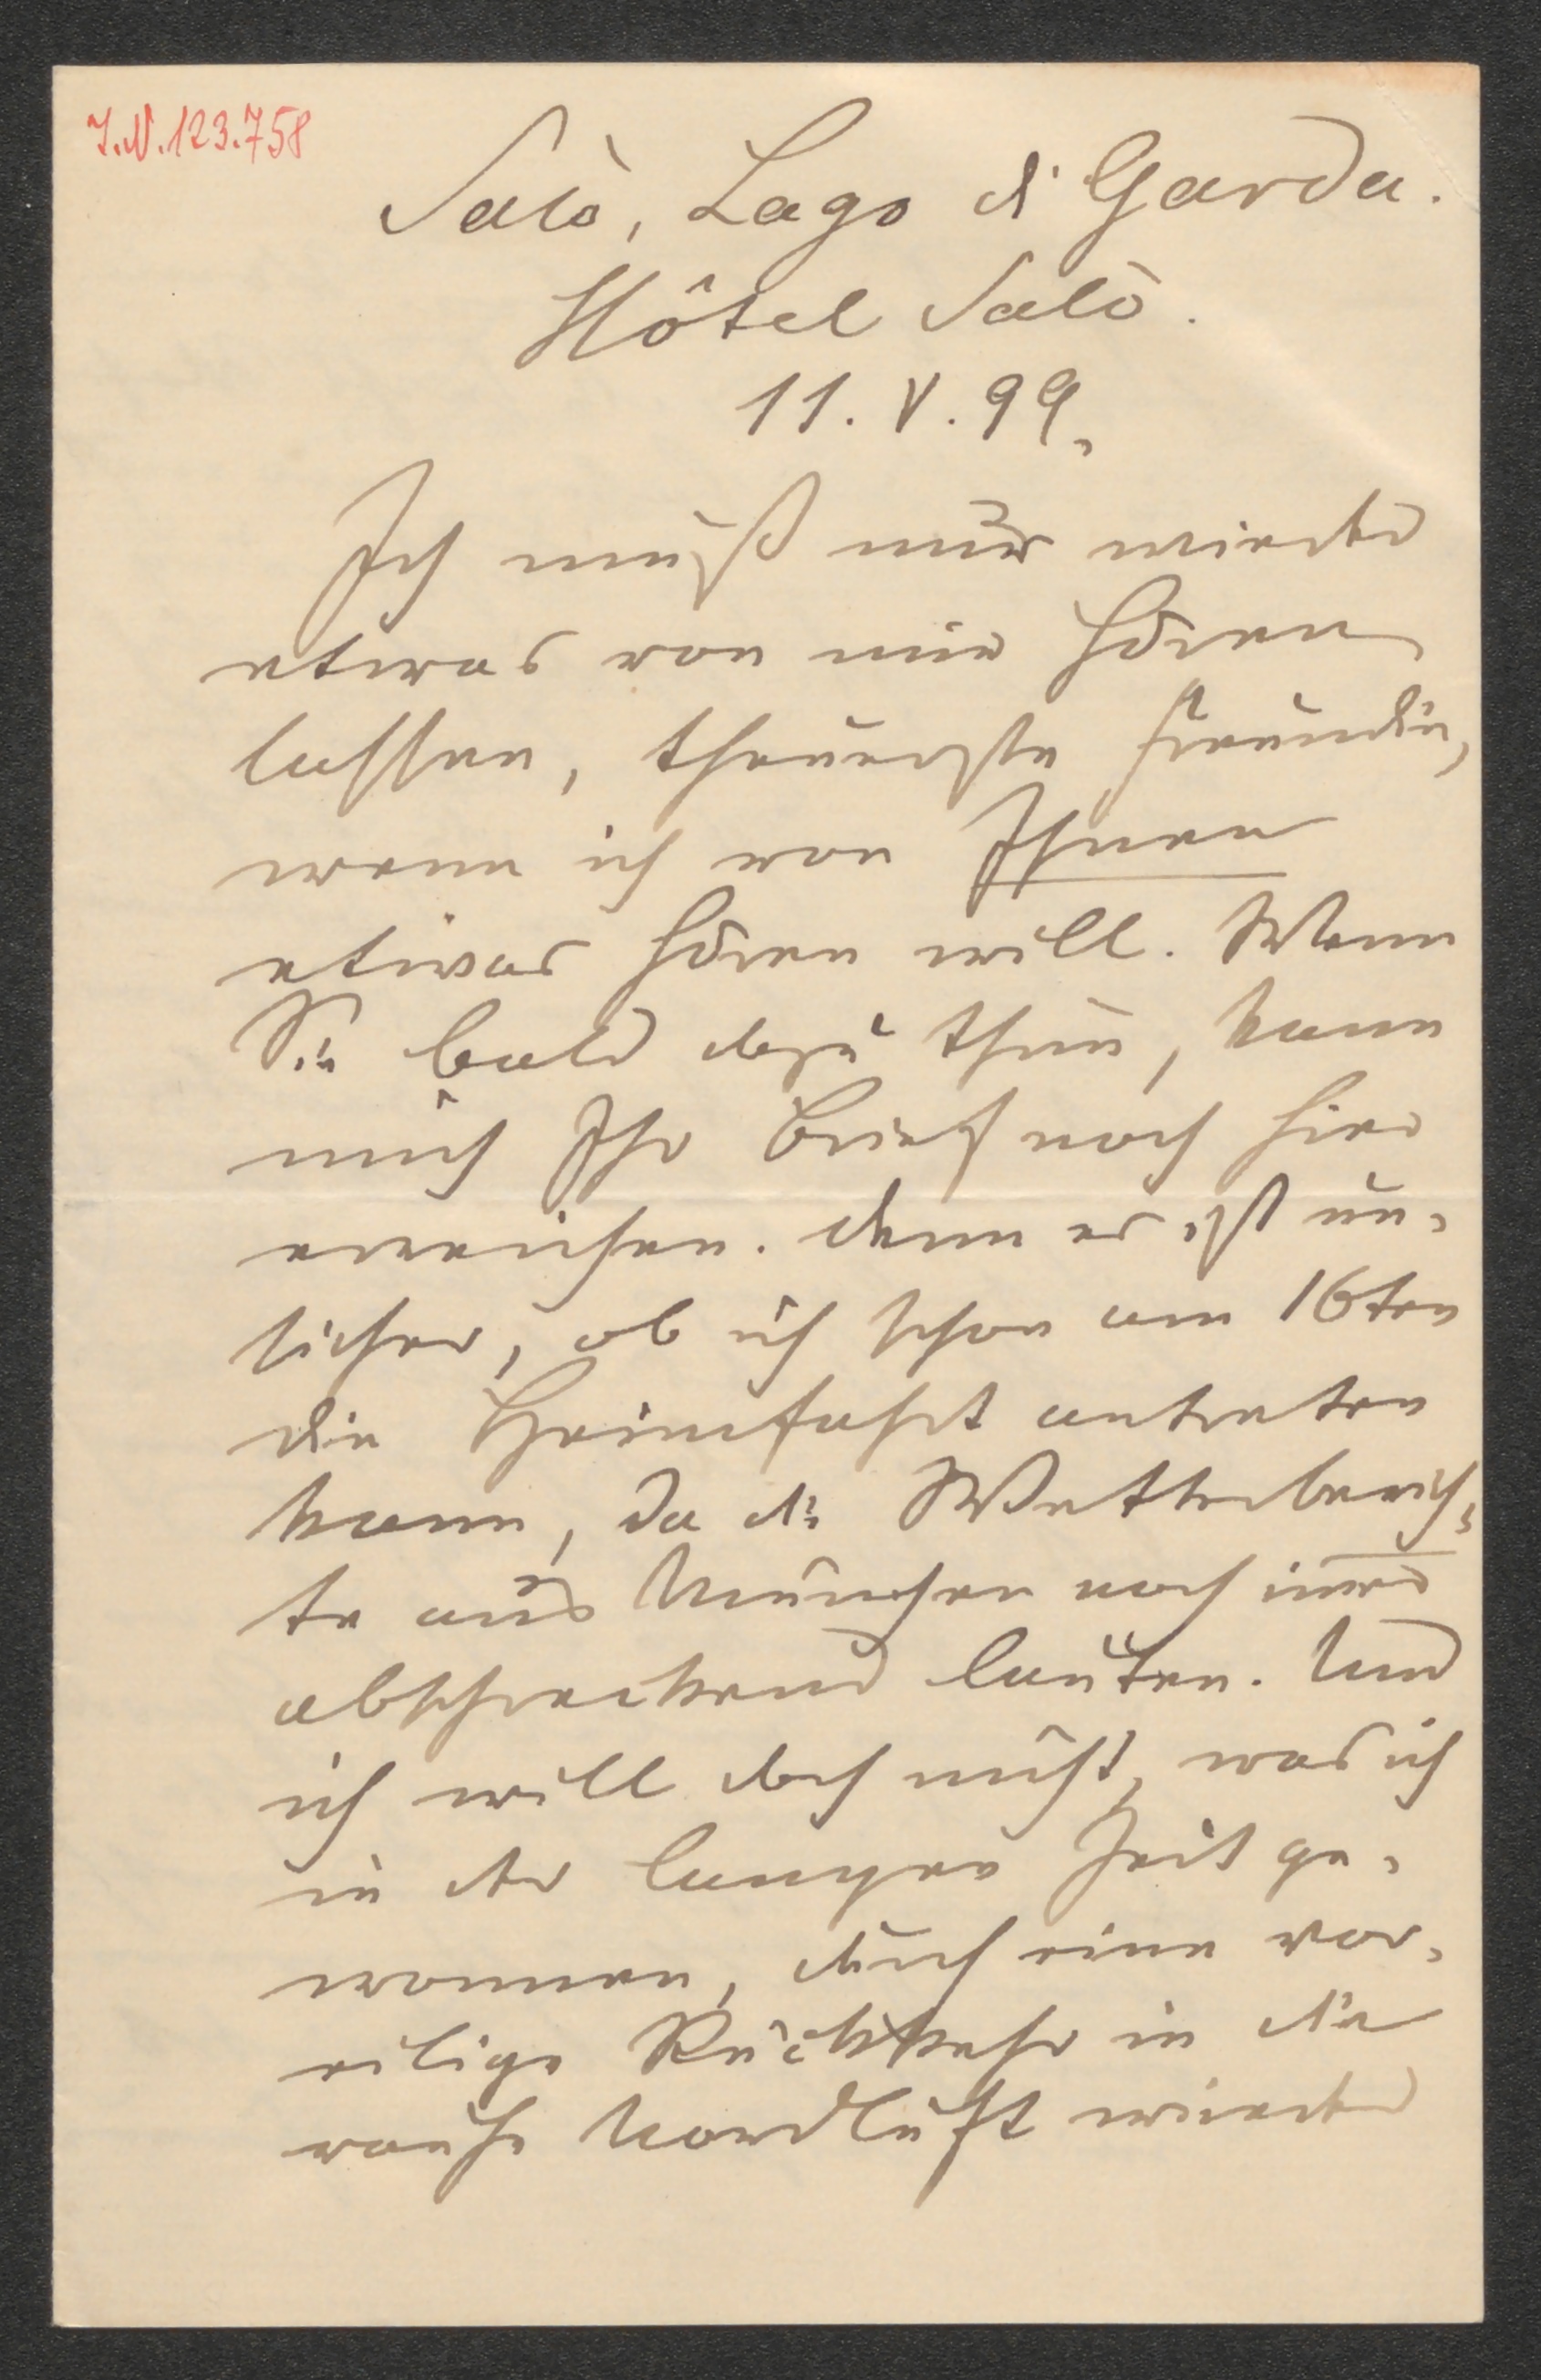 I.N. 123.758
Salò, Lago di Garda.
Hôtel Salò.
11. V. 99.
Ich muß nur wieder
etwas von mir hören
lassen, theuerste Freundin,
wenn ich von Ihnen
etwas hören will. Wenn
Sie bald dazu thun, kann
mich Ihr Brief noch hier
erreichen. Denn es ist un-
sicher, ob ich schon am 16ten
die Heimfahrt antreten
kann, da die Wetterberich-
te aus München noch im̅er
abschreckend lauten. Und
ich will doch nicht, was ich
in der langen Zeit ge-
wonnen, durch eine vor-
eilige Rückkehr in die
rauhe Nordluft wieder